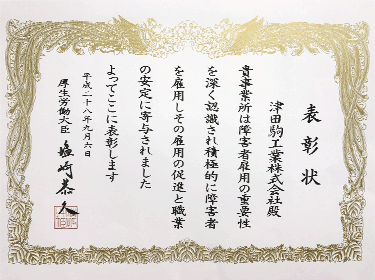 表彰状
津田駒工業株式会社殿
貴事業所は障害者雇用の重要性
を深く認識され積極的に障害者
を雇用しその雇用の促進と職業
の安定に寄与されました
よってここに表彰します
平成二十八年九月六日
厚生労働大臣 塩崎恭久